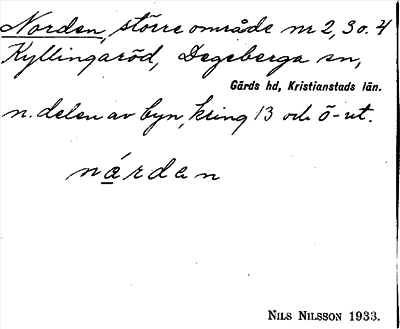 Norden, större område nr 2, 3 o. 4
Kyllingaröd, Degeberga sn,
Gärds hd, Kristianstads län.
n. delen av byn, kring 13 och ö-ut.
nárden
NILS NILSSON 1933.